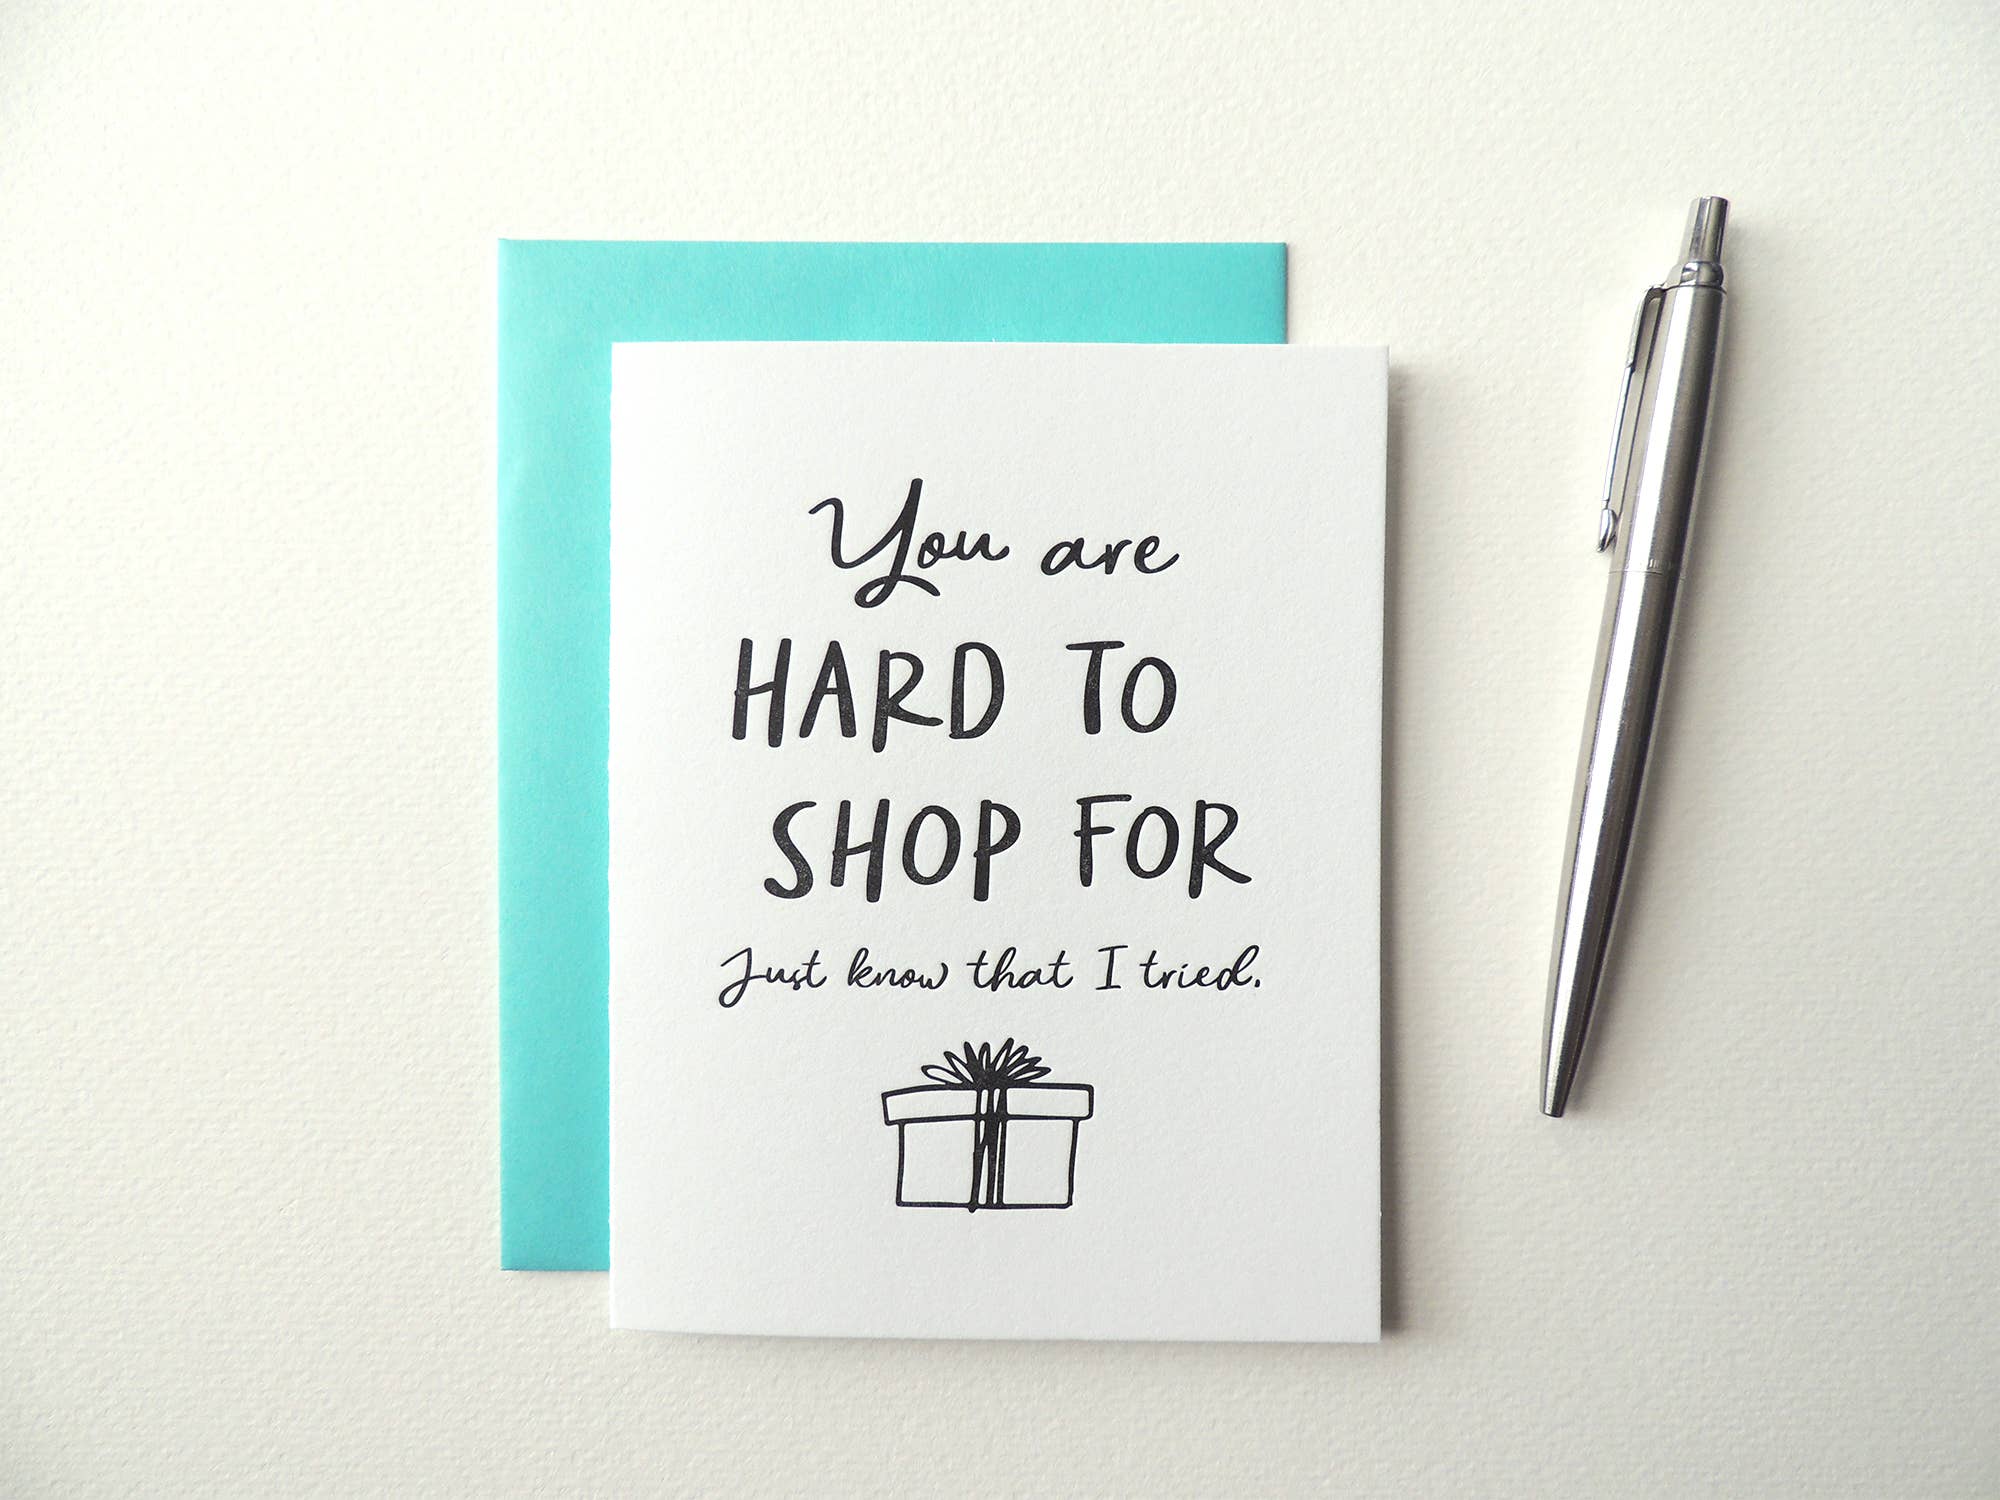 You are
HARD TO
SHOP FOR
Just know that I tried.